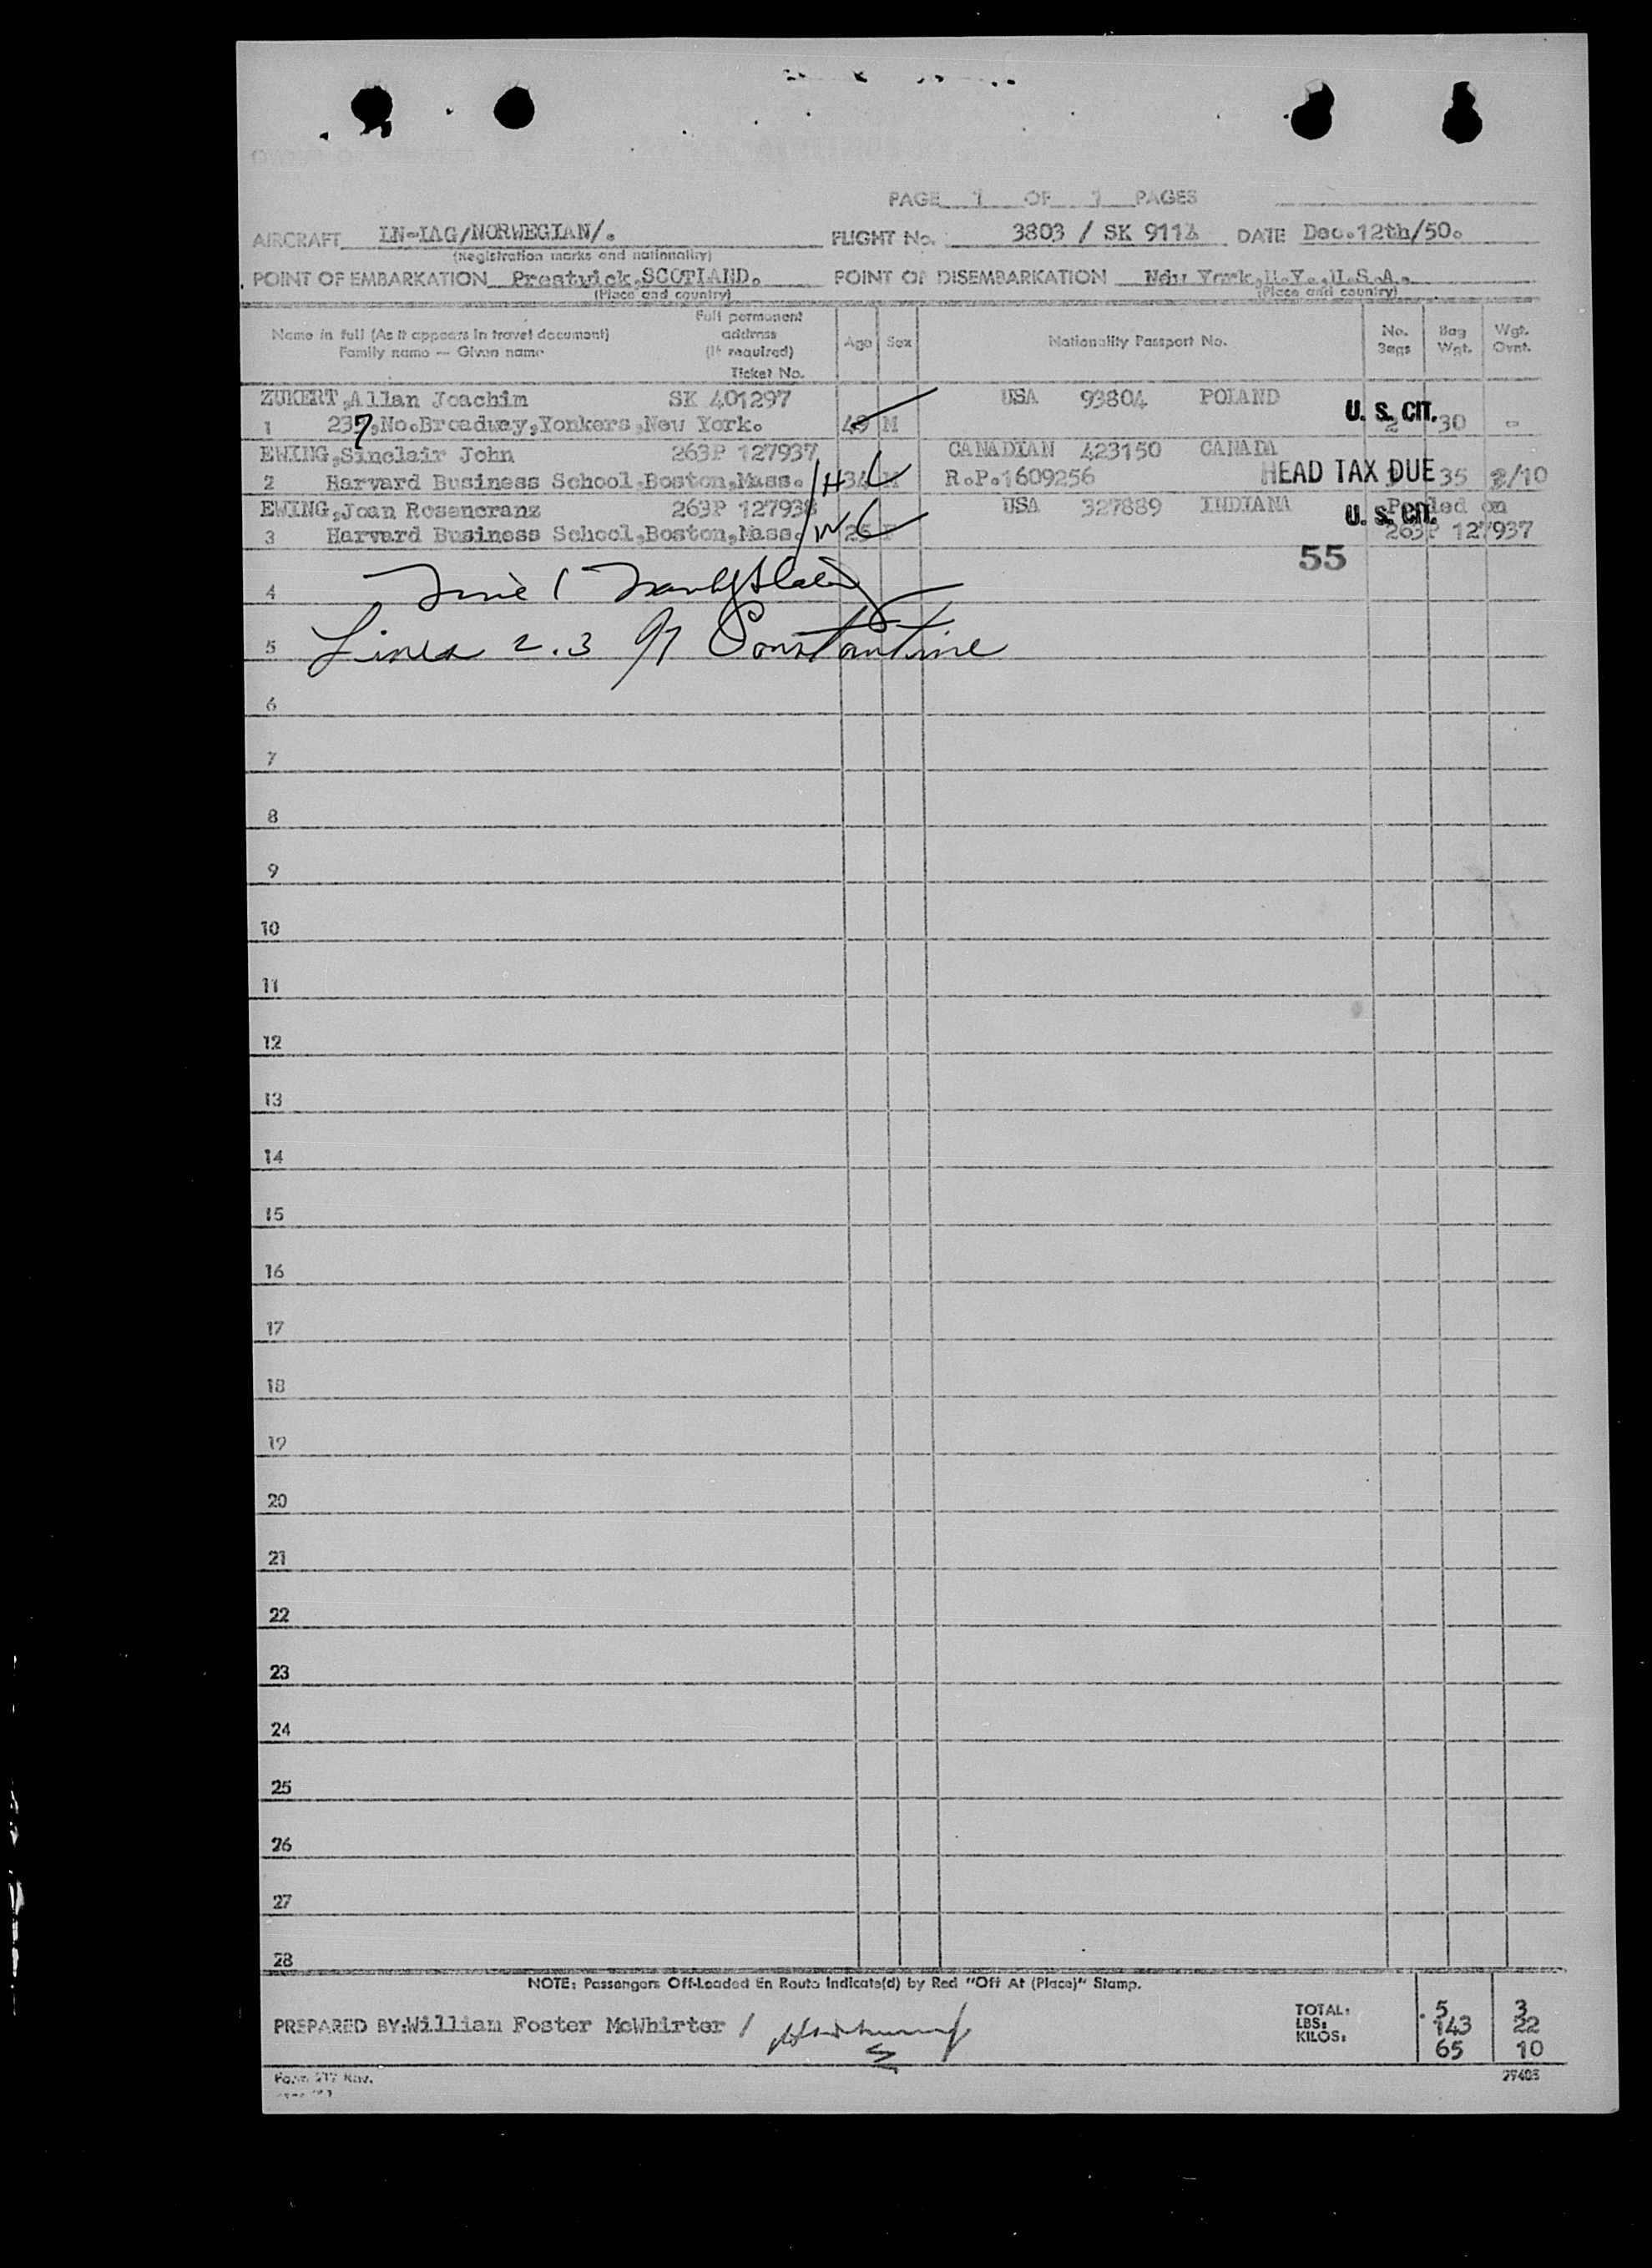 PAGE 1 OF 1 PAGES
AIRCRAFT LN-IAG/NORWEGIAN/. FLIGHT No. 3803 / SK 911 DATE Dec.12th/50.
(Registration marks and nationality)
POINT OF EMBARKATION Prestwick,SCOTLAND. POINT OF DISEMBARKATION New York,N.Y.,U.S.A.
(Place and country) (Place and country)
Name in full (As it appears in travel document) Family name — Given name Full permanent address (If required) Ticket No. Age Sex Nationality Passport No. No. Bags Bag Wgt. Wgt. Ovnt.
ZUKERT,Allan Joachim SK 401297 USA 93804 POLAND U. S. CIT.
1 237,No.Broadway,Yonkers,New York. 49 M 2 30 -
EWING,Sinclair John 263P 127937 CANADIAN 423150 CANADA
2 Harvard Business School,Boston,Mass. /H C 34 M R.P.1609256 HEAD TAX DUE 35 2/10
EWING,Joan Rosencranz 263P 127938 USA 327889 INDIANA U. S. CIT. Pooled on
3 Harvard Business School,Boston,Mass. /W C 25 F 263P 127937
55
4 Line 1
5 Lines 2.3 Constantine
6
7
8
9
10
11
12
13
14
15
16
17
18
19
20
21
22
23
24
25
26
27
28
NOTE: Passengers Off-Loaded En Route Indicate(d) by Red "Off At (Place)" Stamp.
PREPARED BY:William Foster McWhirter /
TOTAL: 5 3
LBS: 143 22
KILOS: 65 10
Form 217 Rev. 27403